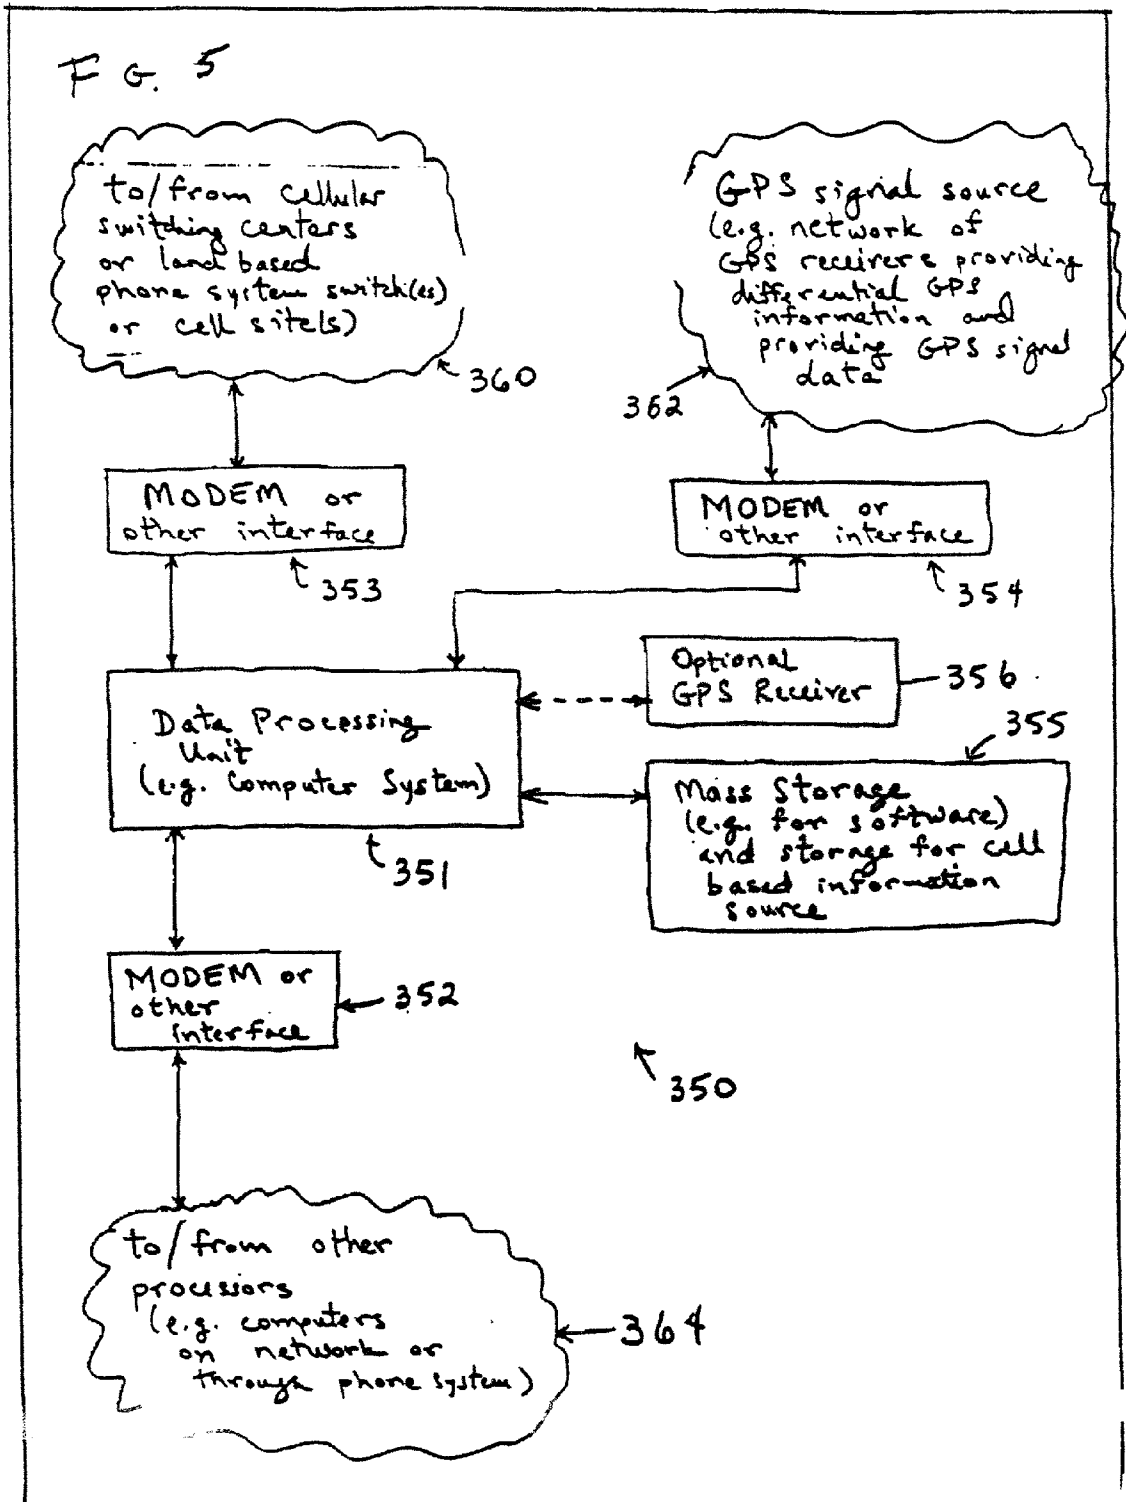 F G. 5
to/from cellular
switching centers
or land based
phone system switch(es)
or cell site(s)
360
GPS signal source
(e.g. network of
GPS receivers providing
differential GPS
information and
providing GPS signal
data
362
MODEM or
other interface
353
MODEM or
other interface
354
Optional
GPS Receiver
356
Data Processing
Unit
(e.g. Computer System)
351
355
Mass Storage
(e.g. for software)
and storage for cell
based information
source
MODEM or
other
interface
352
350
to/from other
processors
(e.g. computers
on network or
through phone system)
364